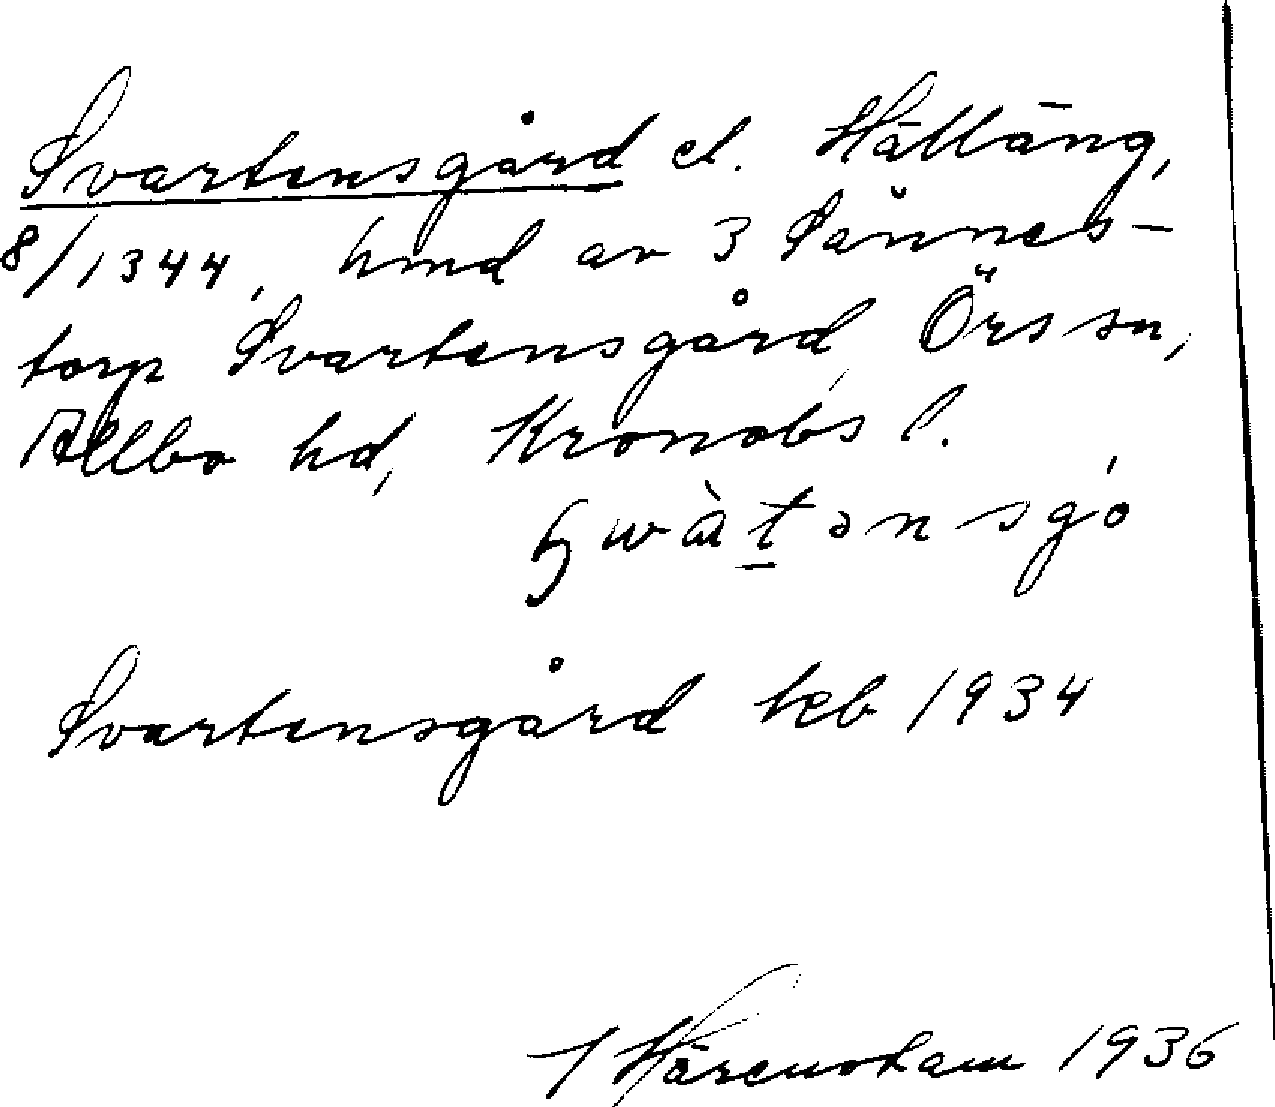 Svartensgård el. Hälläng,
8/1344, hmd av 3 Sännes-
torp Svartensgård, Örs sn,
Allbo hd, Kronobs l.
swàtənsgó
Svartensgård keb 1934
1936